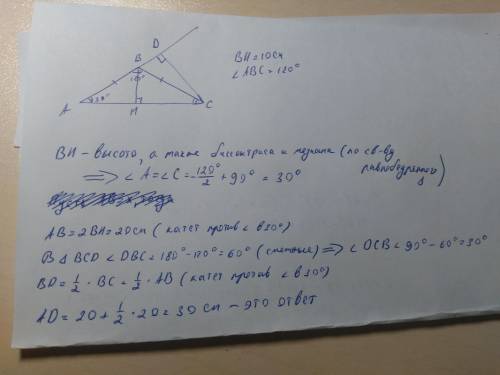 B
D
BH = 10 см
∠ABC = 120°
A
30°
H
C
BH - высота, а также биссектриса и медиана (по св-ву равнобедренного Δ)
⟹ ∠A = ∠C = -120°/2 + 90° = 30°
AB = 2BH = 20 см (катет против ∠ в 30°)
В Δ BCD ∠DBC = 180° - 120° = 60° (смежные) ⟹ ∠DCB = 90° - 60° = 30°
BD = 1/2 · BC = 1/2 · AB (катет против ∠ в 30°)
AD = 20 + 1/2 · 20 = 30 см - это ответ